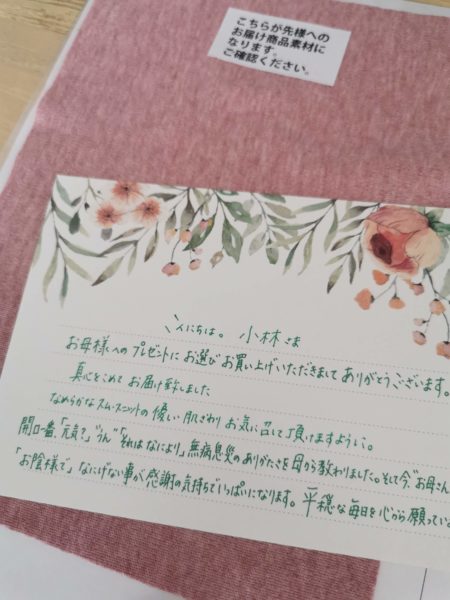 こちらが先様への
お届け商品素材に
なります。
ご確認ください。
こんにちは。 小林さま
お母様へのプレゼントにお選びお買い上げいただきましてありがとうございます。
真心をこめてお届け致しました
なめらかなスムースニットの優しい肌ざわりお気に召して頂けますように。
開口一番、「元気?」"うん"「それはなにより」無病息災のありがたさを母から教わりました。そして今、お母さん
「お陰様で」なにげない事が感謝の気持ちでいっぱいになります。平穏な毎日を心から願ってい